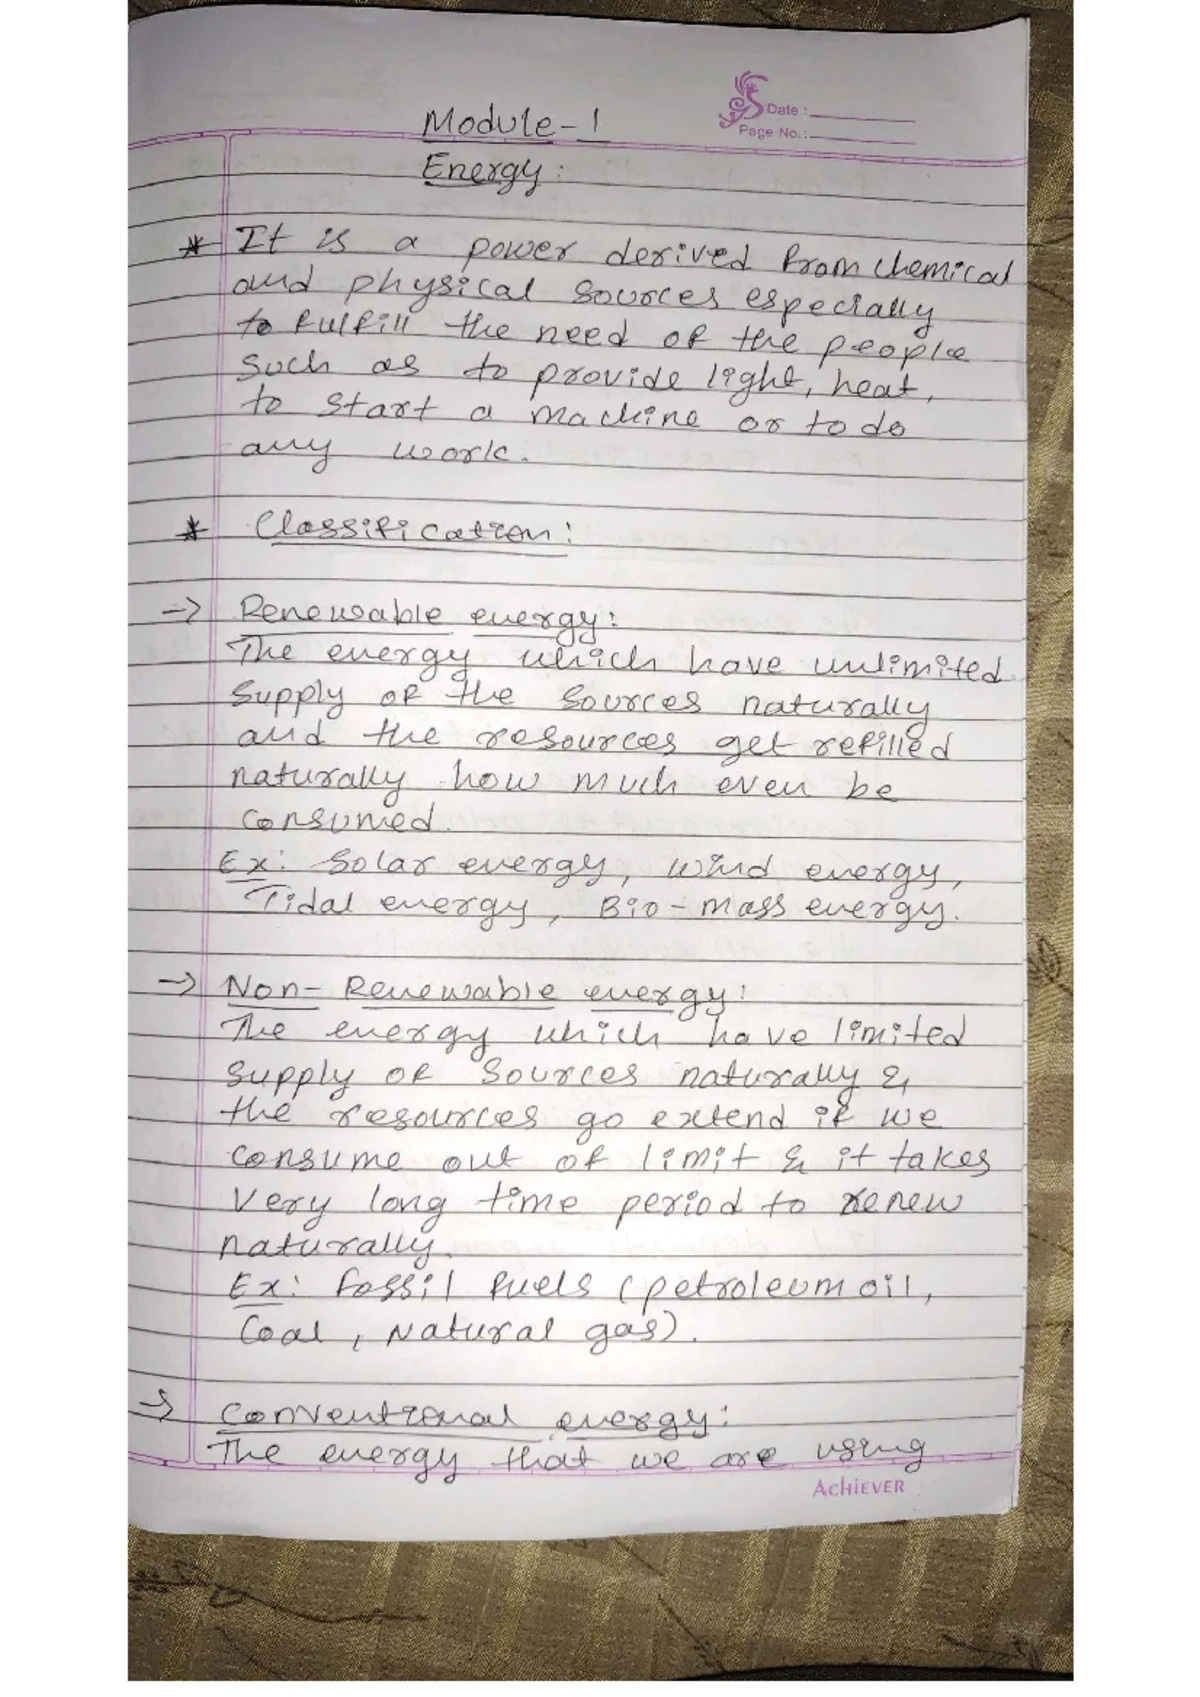 Date :
Page No.:
Module-1
Energy:
* It is a power derived from chemical
and physical sources especially
to fulfill the need of the people
such as to provide light, heat,
to start a machine or to do
any work.
* Classification:
-> Renewable energy:
The energy which have unlimited
supply of the sources naturally
and the resources get refilled
naturally how much even be
consumed.
Ex: Solar energy, wind energy,
Tidal energy, Bio-mass energy.
-> Non-Renewable energy:
The energy which have limited
supply of sources naturally &
the resources go extend if we
consume out of limit & it takes
very long time period to renew
naturally.
Ex: Fossil fuels (petroleum oil,
Coal, Natural gas).
-> Conventional energy:
The energy that we are using
AchiEVER